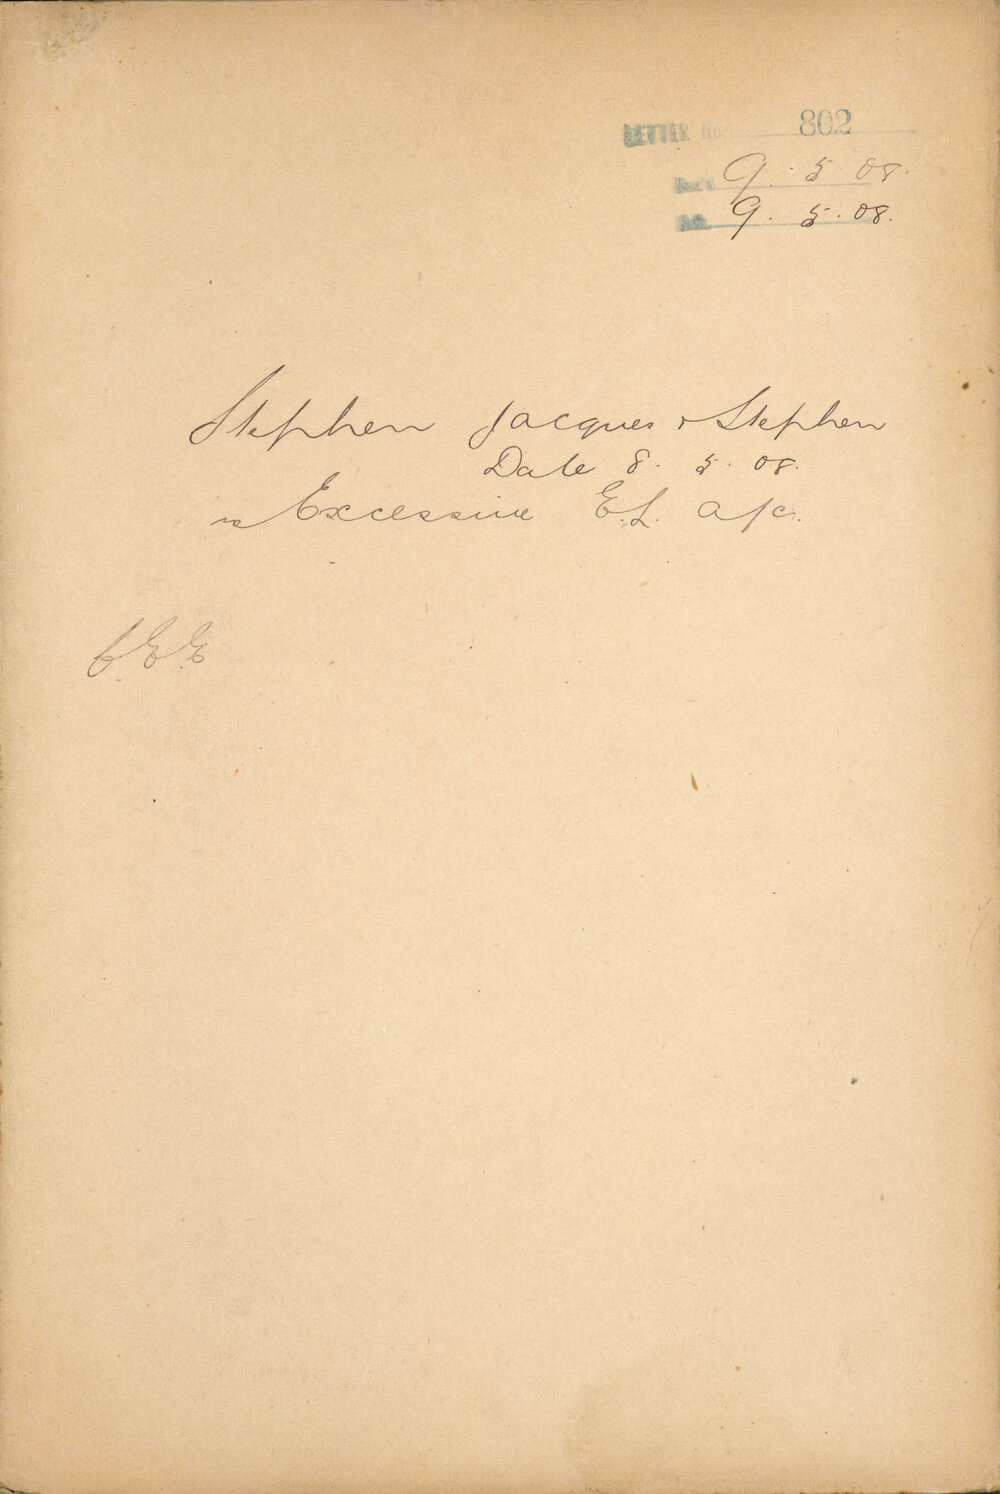 LETTER No 802
Rec'd 9. 5. 08.
9. 5. 08.
Stephen Jacques & Stephen
Date 8. 5. 08.
re Excessive E.L. a/c.
C.E.E